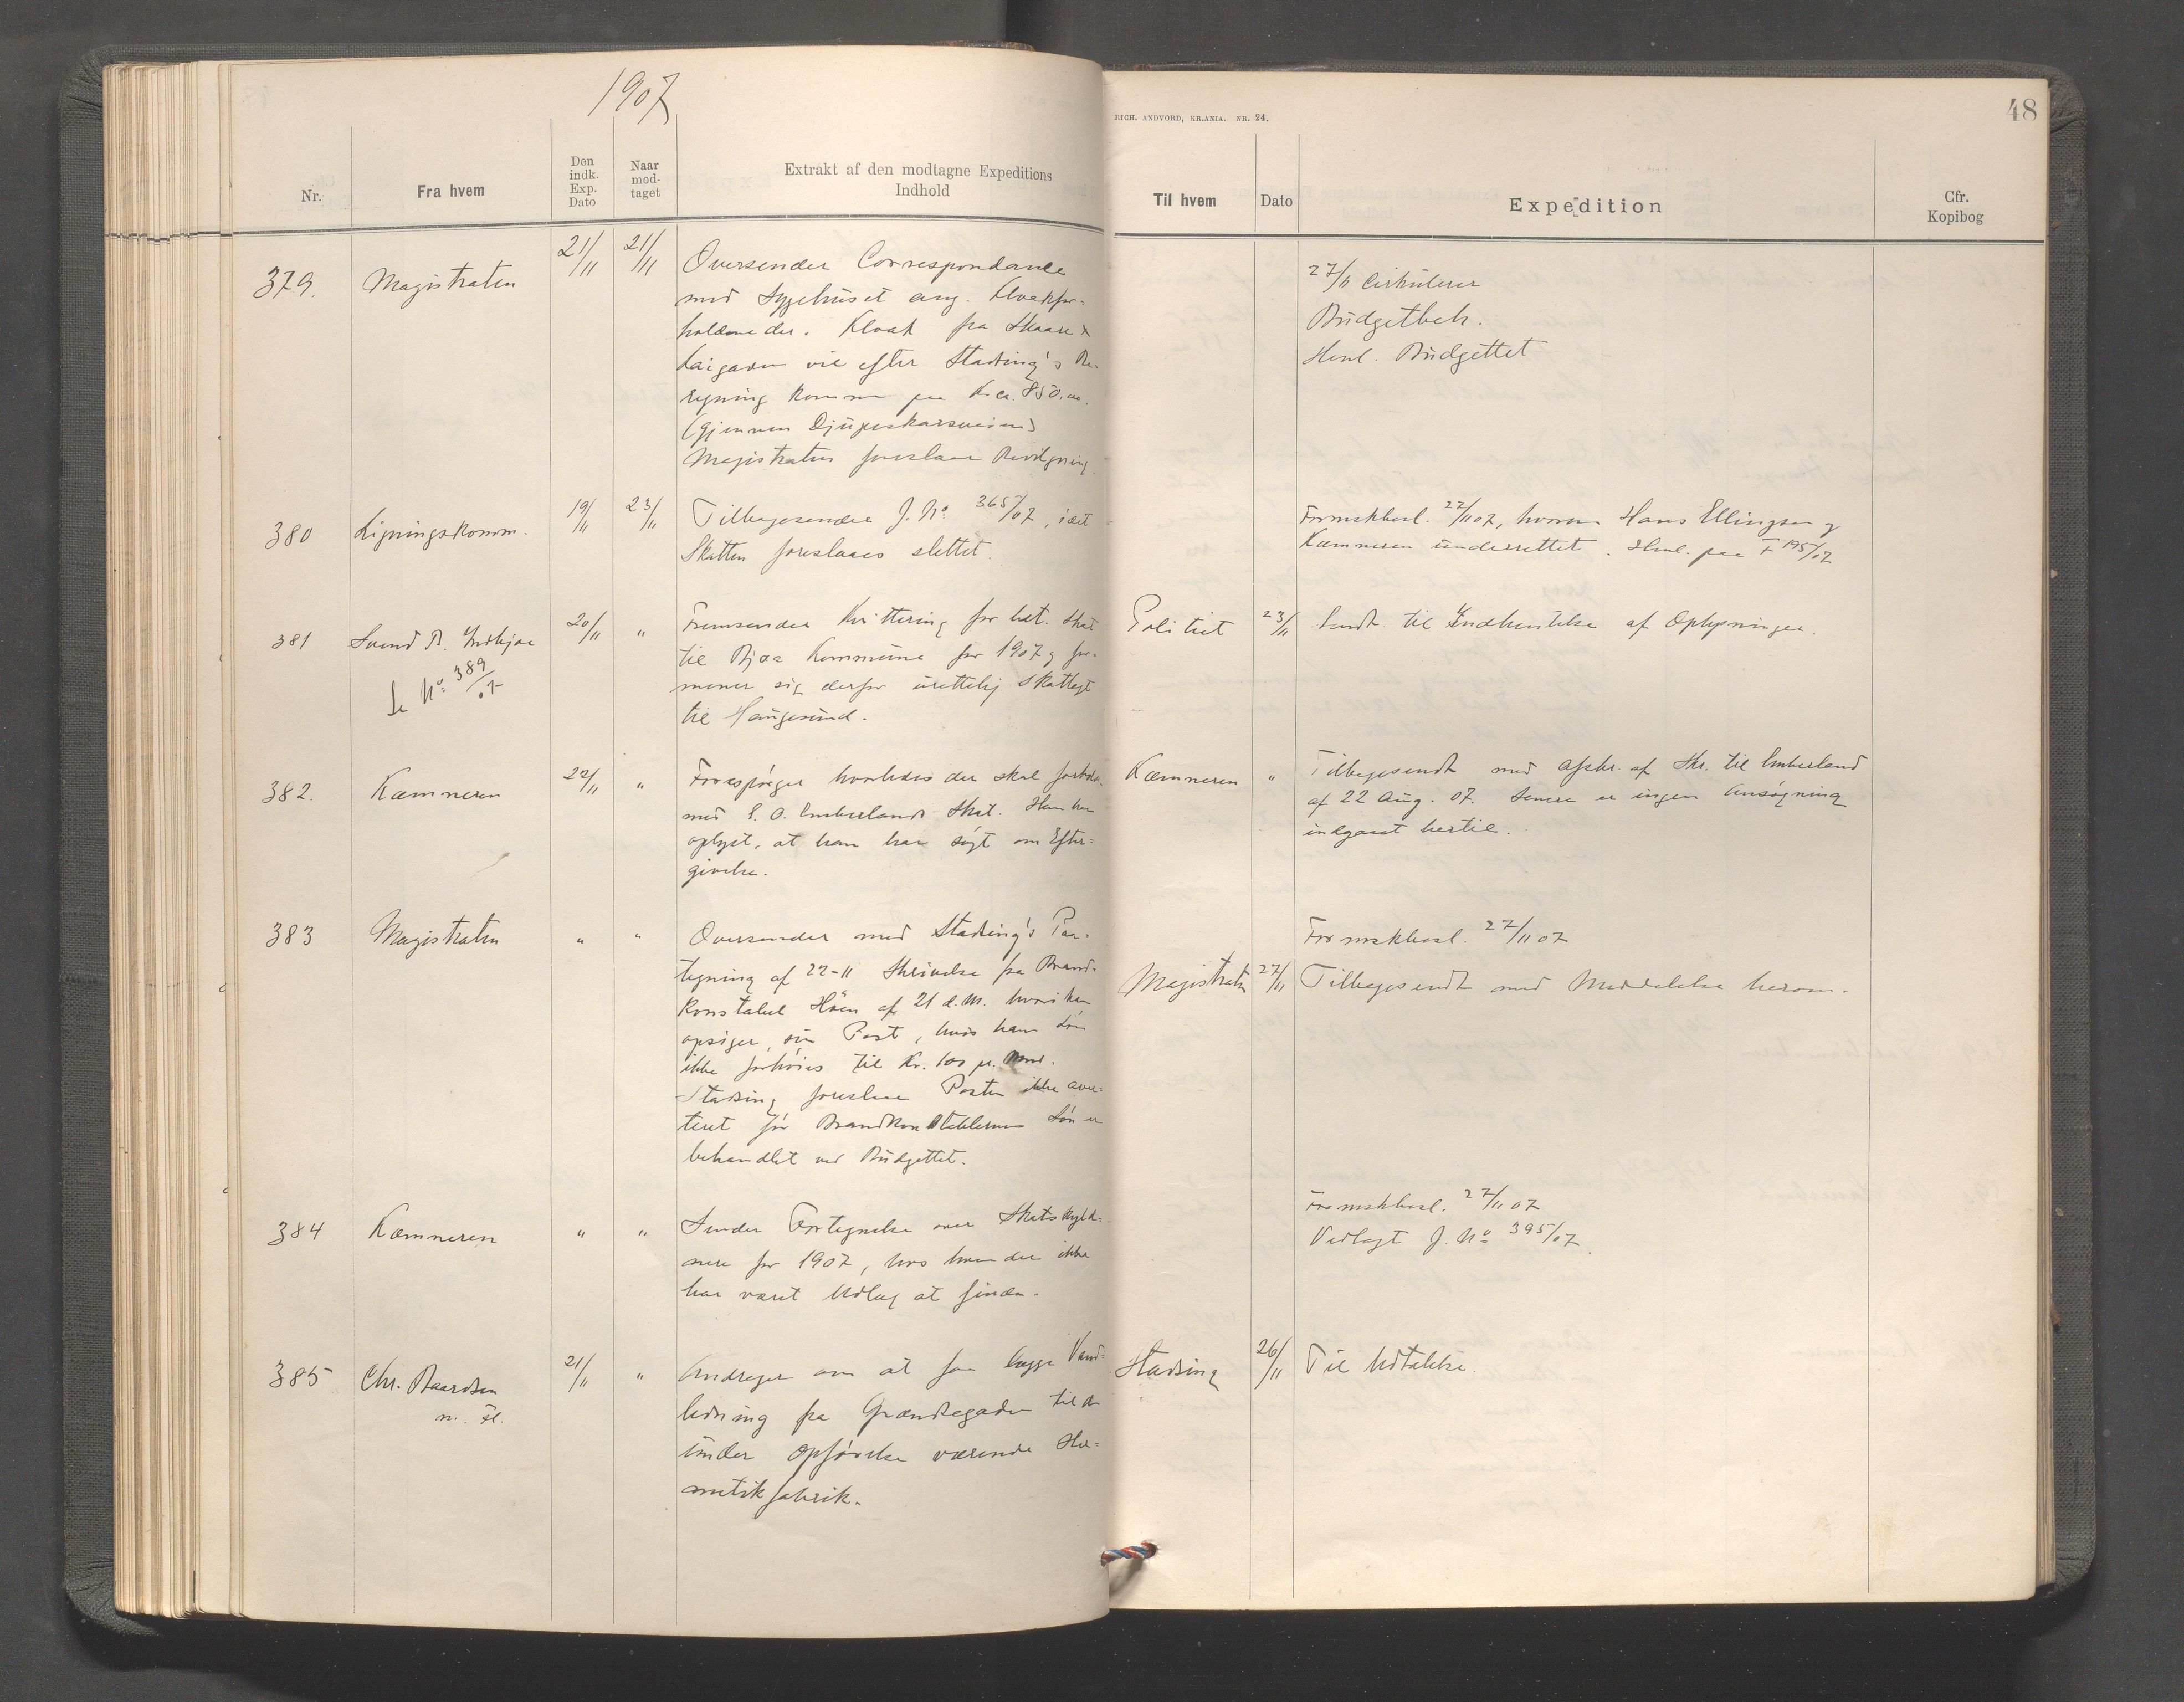 1907
RICH. ANDVORD, KR.ANIA. NR. 24.
48
Nr.
Fra hvem
Den indk. Exp. Dato
Naar mod- taget
Extrakt af den modtagne Expeditions
Indhold
Til hvem
Dato
Expedition
Cfr.
Kopibog
379.
Magistraten
21/11
21/11
Oversender Correspondance
med Sygehuset ang. Kloakfor-
holdene der. Kloak fra Skaare
Kaigaden vil efter Stadsing's Be-
regning komme paa
(gjennem Djupaskarsveien)
Magistraten foreslaar Bevilgning
27/11 Cirkulerer
Budgetbeh.
Henl. Budgettet
380
Ligningskomm.
19/11
23/11
Tilbagesender J. No. 365/07, idet
Skatten foreslaaes slettet.
Formskbesl. 27/11 07, hvorom Hans Ellingsen og
Kæmneren underrettet. Henl. paa F 195/07
381
Svend B.
Se No. 389/07
20/11
"
Fremsender Kvittering for bet. Skat
til Bjoa Kommune for 1907 og for-
mener sig derfor urettelig skatlagt
til Haugesund.
Politiet
23/11
Sendt til Indhentelse af Oplysninger.
382.
Kæmneren
22/11
"
Forespørger hvorledes der skal forholdes
med E. O. Emberlands Skat. Han har
oplyst, at han har søgt om Efter-
givelse.
Kæmneren
"
Tilbagesendt med Afskr. af Skr. til Emberland
af 22 Aug. 07. Senere er ingen Ansøgning
indgaaet hertil.
383
Magistraten
"
"
Oversender med Stadsing's Paa-
tegning af 22-11 Skrivelse fra Brand-
konstabel Høien af 21 d.M. hvori han
opsiger sin Post, hvis hans Løn
ikke forhøies til Kr. 100 pr. Mnd.
Stadsing foreslaar Posten ikke aver-
teret før Brandkonstablernes Løn er
behandlet ved Budgettet.
Formskbesl. 27/11 07
Magistraten
27/11
Tilbagesendt med Meddelelse herom.
384
Kæmneren
"
"
Sender Fortegnelse over Skatskyld-
nere for 1907, hos hvem der ikke
har været Udlæg at finde.
Formskbesl. 27/11 07
Vedlagt J. No 395/07.
385
Chr. Baardsen
m. fl.
21/11
"
Andrager om at faa lægge Vand-
ledning fra Grændsegaden til den
under Opførelse værende Her-
metikfabrik.
Stadsing
26/11
Til Udtalelse.